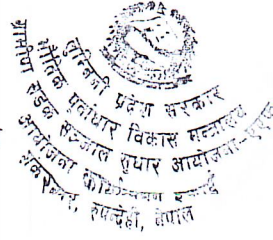 लुम्बिनी प्रदेश सरकार
भौतिक पूर्वाधार विकास मन्त्रालय
ग्रामीण सडक सञ्जाल सुधार आयोजना
आयोजना कार्यान्वयन इकाई
रुपन्देही, नेपाल